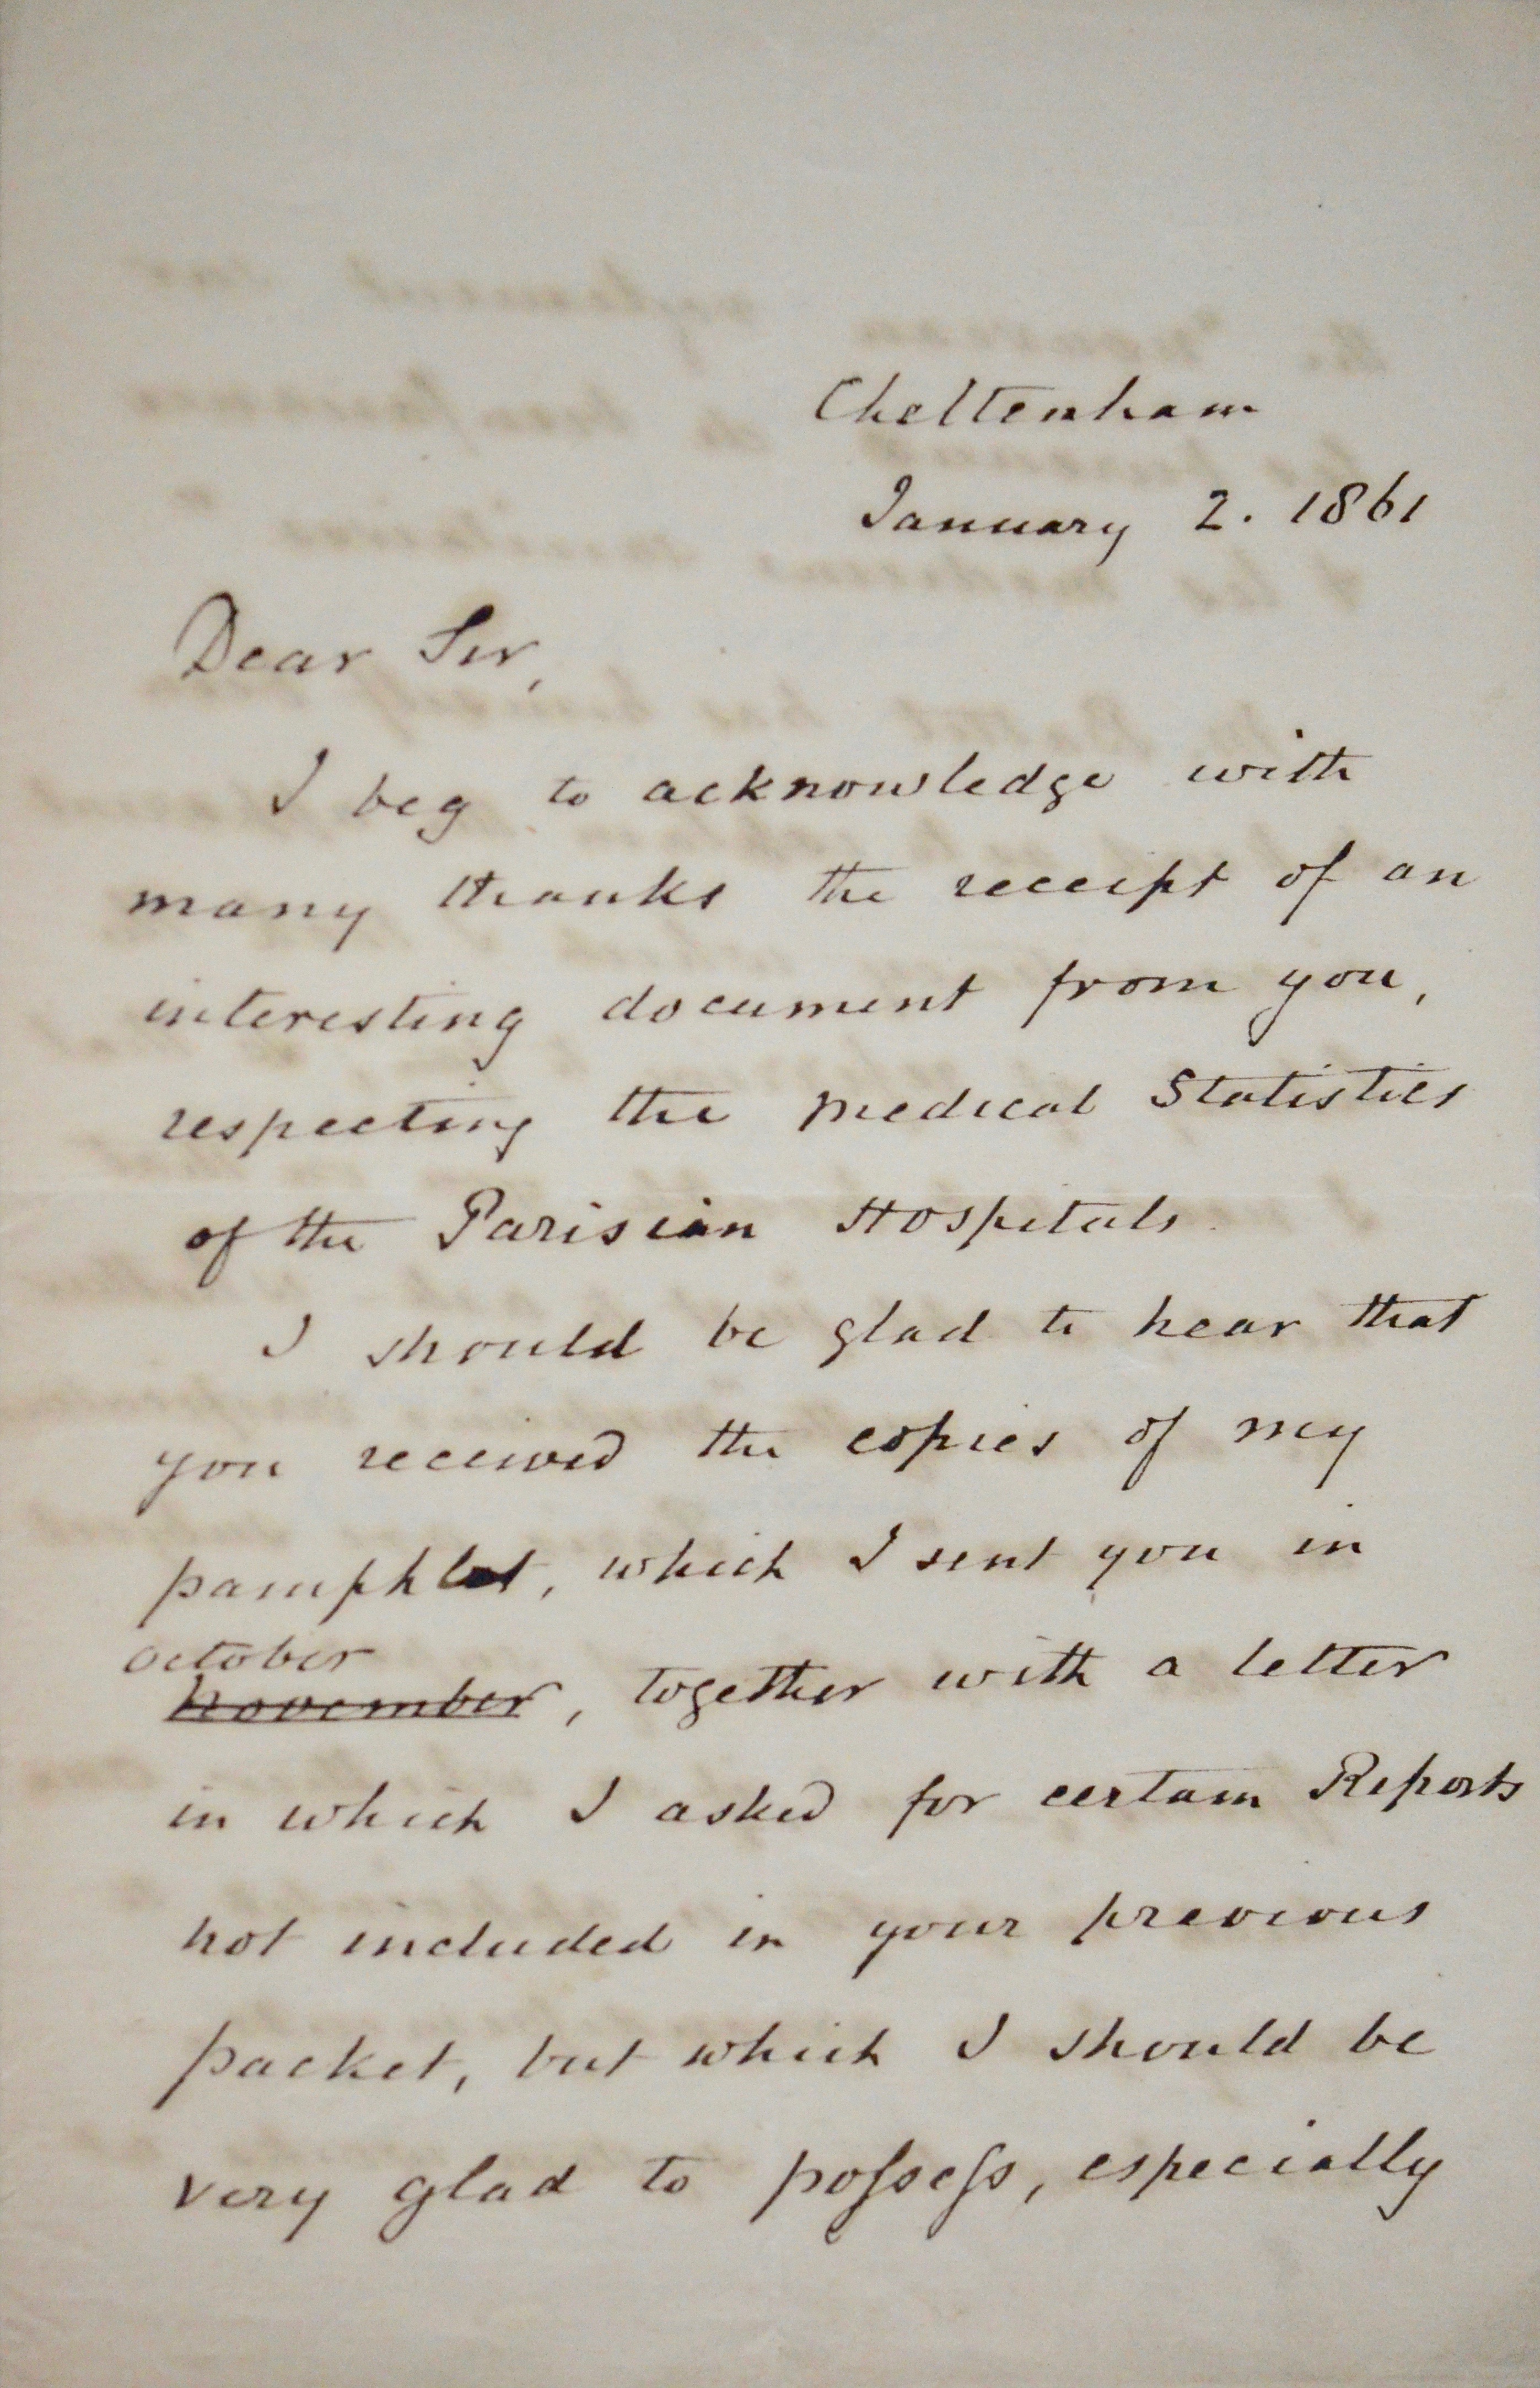 Cheltenham
January 2. 1861
Dear Sir,
I beg to acknowledge with
many thanks the receipt of an
interesting document from you,
respecting the medical Statistics
of the Parisian Hospitals.
I should be glad to hear that
you received the copies of my
pamphlet, which I sent you in
October
November, together with a letter
in which I asked for certain Reports
not included in your previous
packet, but which I should be
very glad to poſseſs, especially